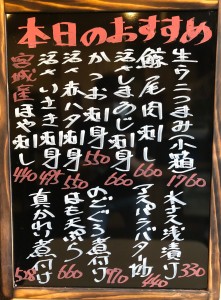 本日のおすすめ
生ウニつまみ小箱 1760
鯨尾肉刺し 660
活〆しまあじ刺身 660
かつお刺身 550
活〆赤ハタ刺身 550
活〆いさき刺身 495
宮城産ほや刺し 440
水ナス浅漬け 330
アスパラバター炒 440
のどぐろ煮付け 990
はも天ぷら 660
真かれい煮付け 528